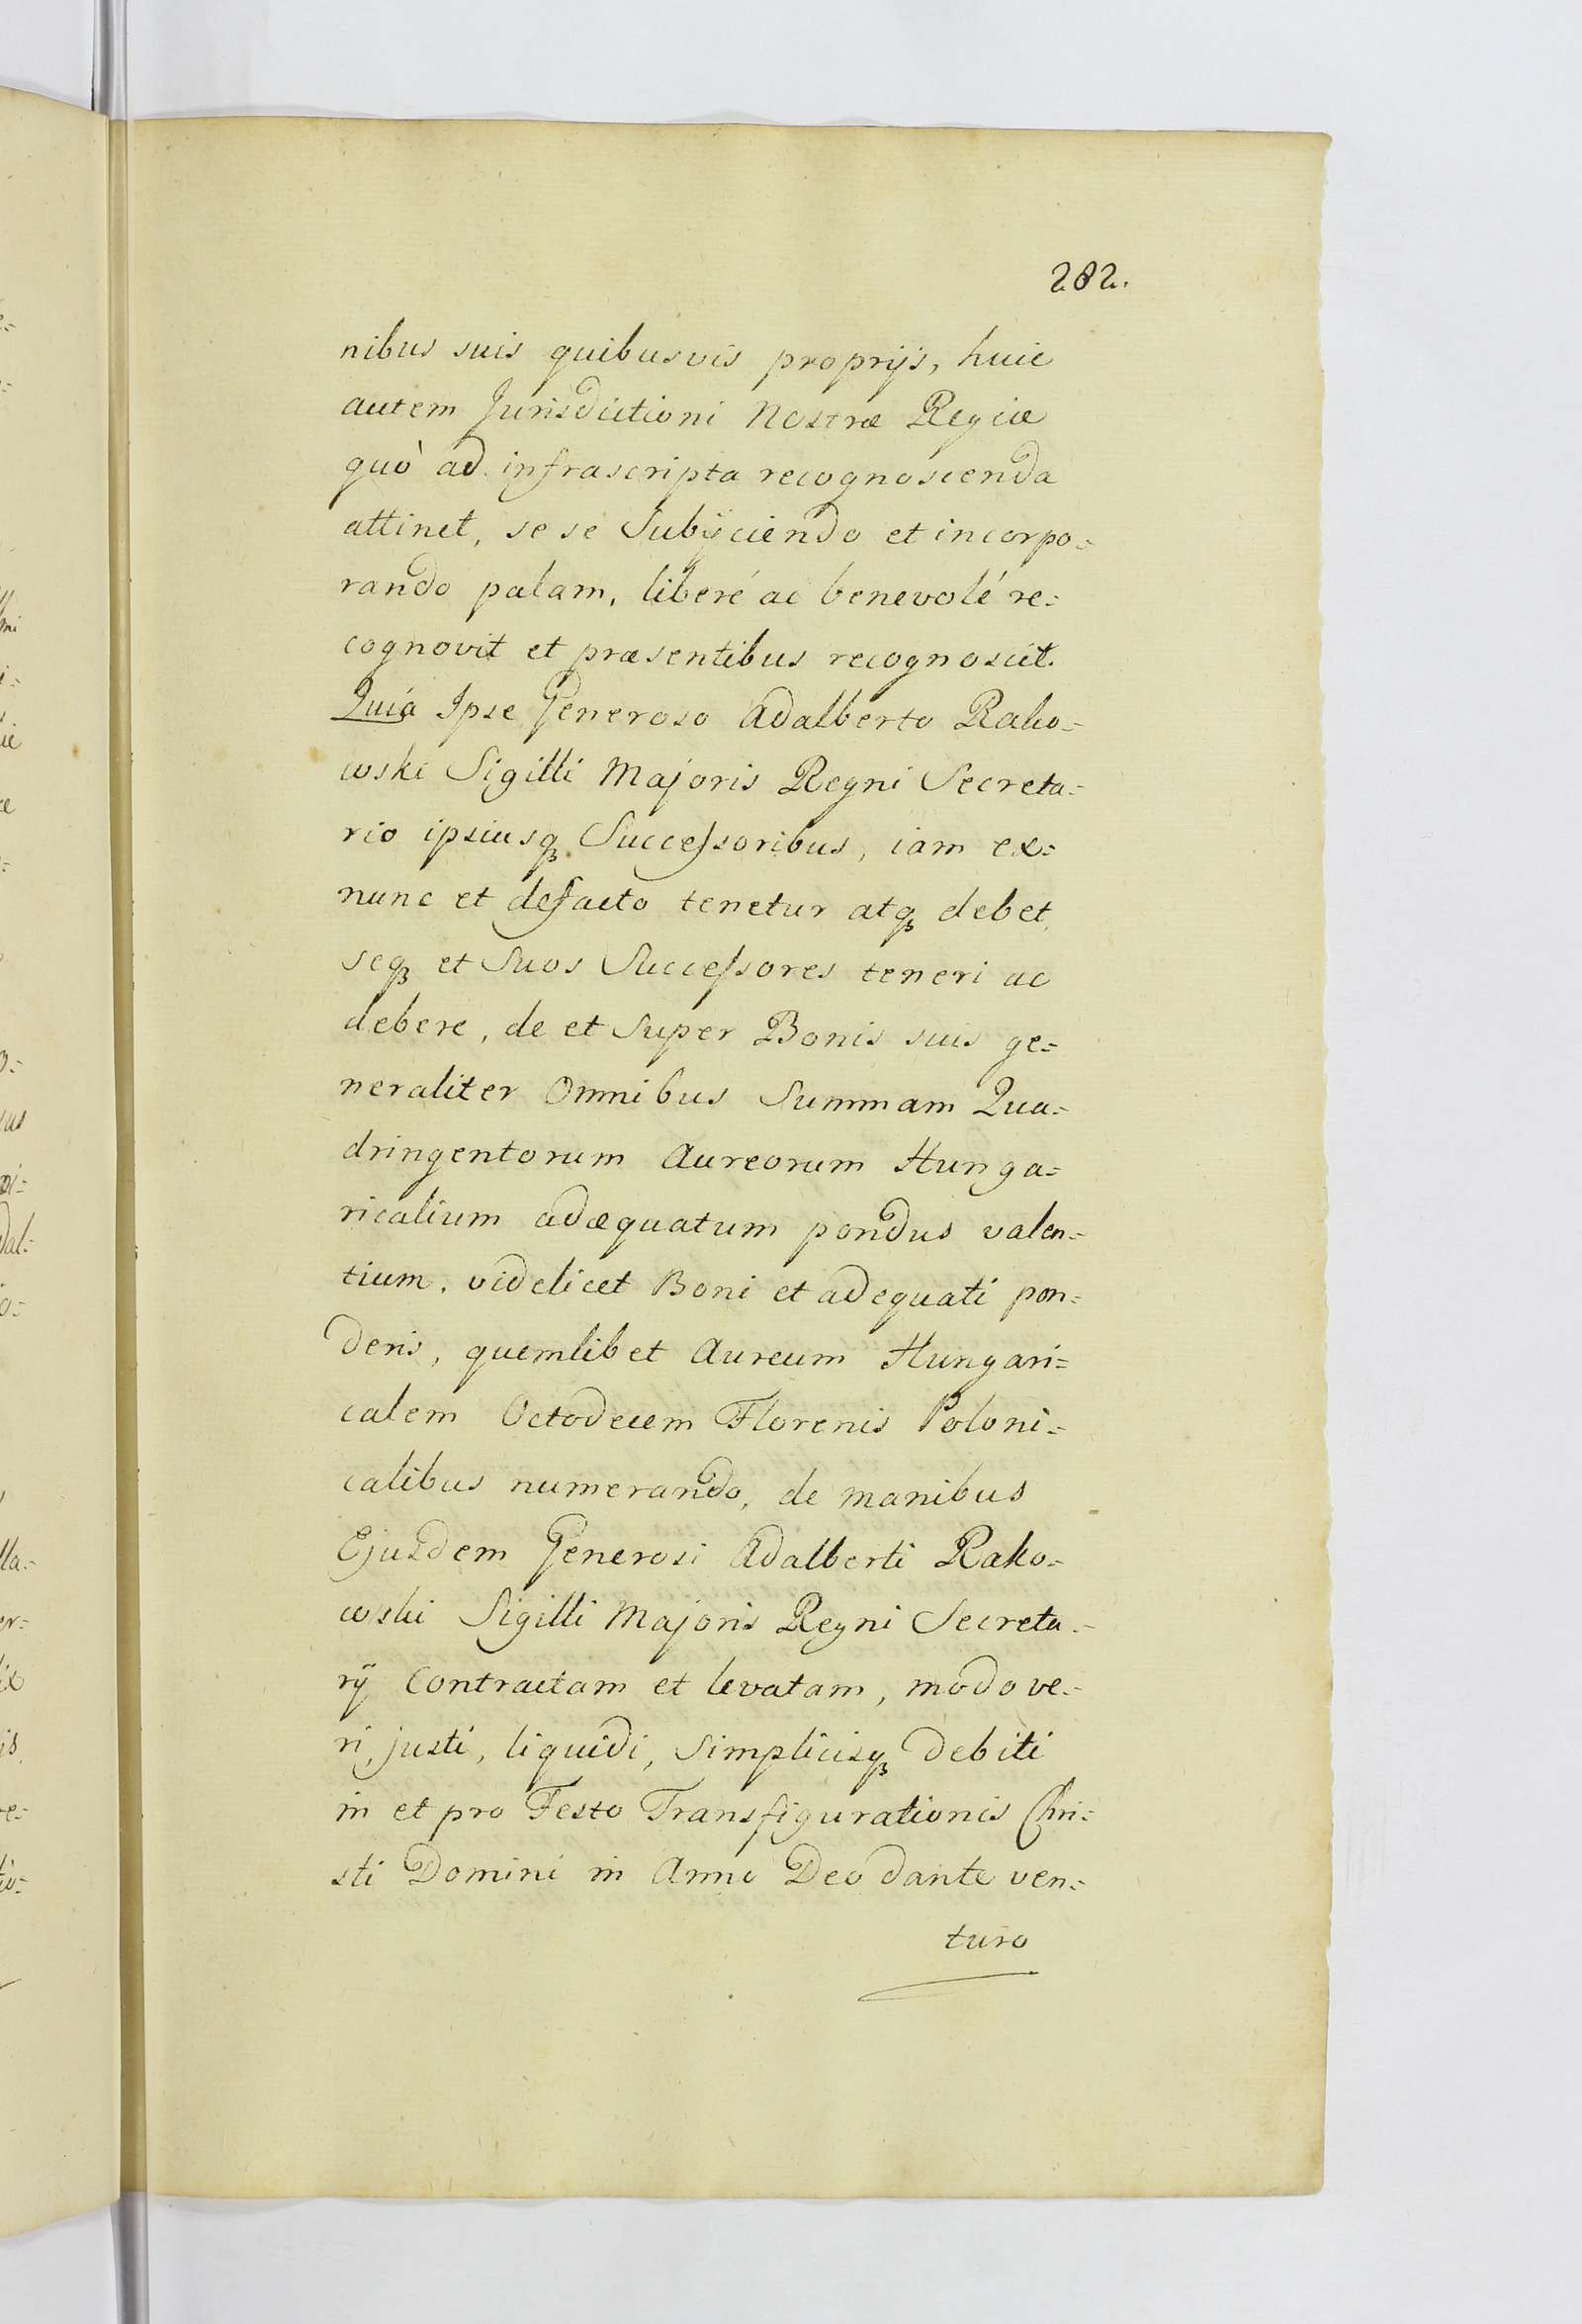 282.
nibus suis quibusvis proprijs, huic
autem Jurisdictioni Nostræ Regiæ
quò ad infrascripta recognoscenda
attinet, se se Subijciendo et incorpo=
rando palam, liberé ac benevolé re=
cognovit et præsentibus recognoscit.
Quia Ipse Generoso Adalberto Rako=
wski Sigilli Majoris Regni Secreta=
rio ipsiusq Successoribus, iam ex=
nunc et defacto tenetur atq debet,
seq et Suos Successores teneri ac
debere, de et Super Bonis suis ge=
neraliter Omnibus Summam Qua=
dringentorum Aureorum Hunga=
ricalium adæquatum pondus valen=
tium, videlicet Boni et adequati pon=
deris, quemlibet Aureum Hungari=
calem Octodecem Florenis Poloni=
calibus numerando, de manibus
Ejusdem Generosi Adalberti Rako=
wski Sigilli Majoris Regni Secreta=
rij Contractam et levatam, modo ve=
ri, justi, liquidi, Simplicisq debiti
in et pro Festo Transfigurationis Chri=
sti Domini in Anno Deo dante ven=
turo